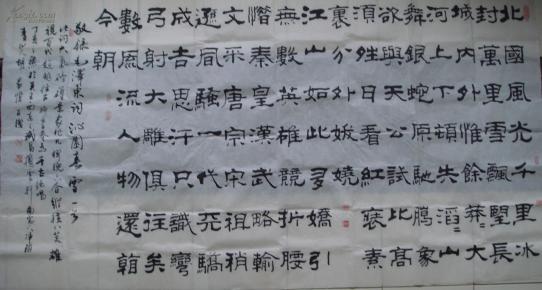 北國風光千里冰
封萬里雪飄望長
城內外惟餘莽〻大
河上下頓失滔〻山
舞銀蛇原馳象
欲與天公試比高
須晴日看紅裝素
裹分外妖嬈
江山如此多嬌引
無數英雄競折腰
惜秦皇漢武略輸
文采唐宗宋祖稍
遜風騷一代天驕
成吉思汗只識彎
弓射大雕俱往矣
數風流人物還看
今朝
敬錄毛澤東詞沁園春雪一首